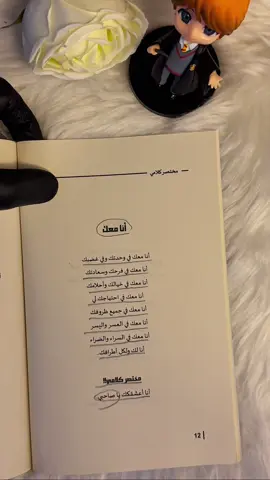 مختصر كلامي
أنا معك
أنا معك في وحدتك وفي غضبك
أنا معك في فرحك وسعادتك
أنا معك في خيالك وأحلامك
أنا معك في احتياجك لي
أنا معك في جميع ظروفك
أنا معك في العسر واليسر
أنا معك في السراء والضراء
أنا لك ولكل أطرافك
مختصر كلامي!!
أنا أعشقك يا صاحبي
12